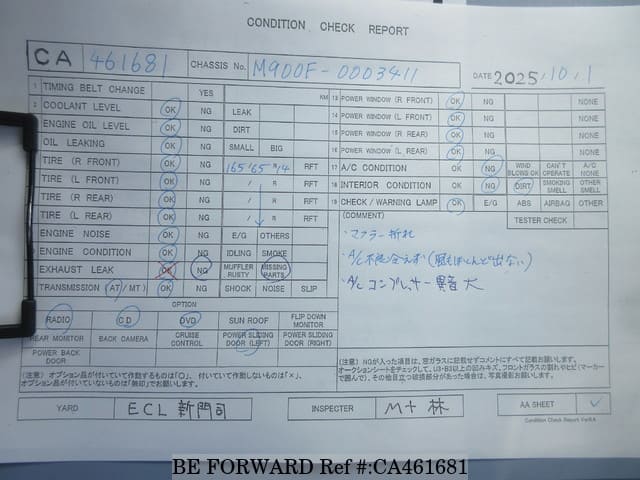 CONDITION CHECK REPORT
CA 461681 CHASSIS No. M900F-0003411 DATE 2025.10.1
1 TIMING BELT CHANGE YES KM
2 COOLANT LEVEL OK NG LEAK
ENGINE OIL LEVEL OK NG DIRT
OIL LEAKING OK NG SMALL BIG
TIRE (R FRONT) OK NG 165/65 R 14 RFT
TIRE (L FRONT) OK NG / R RFT
TIRE (R REAR) OK NG / R RFT
TIRE (L REAR) OK NG / R RFT
ENGINE NOISE OK NG E/G OTHERS
ENGINE CONDITION OK NG IDLING SMOKE
EXHAUST LEAK OK NG MUFFLER RUSTY MISSING PARTS
TRANSMISSION (AT/MT) OK NG SHOCK NOISE SLIP
13 POWER WINDOW (R FRONT) OK NG NONE
14 POWER WINDOW (L FRONT) OK NG NONE
15 POWER WINDOW (R REAR) OK NG NONE
16 POWER WINDOW (L REAR) OK NG NONE
17 A/C CONDITION OK NG WIND BLOWS OK CAN'T OPERATE A/C NONE
18 INTERIOR CONDITION OK NG DIRT SMOKING SMELL OTHER SMELL
19 CHECK / WARNING LAMP OK E/G ABS AIRBAG OTHER
(COMMENT) TESTER CHECK
・マフラー折れ
・A/C不良 冷えず (風もほとんど出ない)
・A/C コンプレッサー 異音 大
OPTION
RADIO CD DVD SUN ROOF FLIP DOWN MONITOR
REAR MONITOR BACK CAMERA CRUISE CONTROL POWER SLIDING DOOR (LEFT) POWER SLIDING DOOR (RIGHT)
POWER BACK DOOR
(注意) オプション品が付いていて作動するものは「○」、付いていて作動しないものは「×」、
オプション品が付いていないものは「無印」でお願いします。
(注意) NGが入った項目は、窓ガラスに記載せずコメントにすべて記載お願いします。
オークションシートをチェックして、U3・B3以上の凹みキズ、フロントガラスの割れやヒビ (マーカー
で囲んで)、その他目立つ破損部分があった場合は、写真撮影お願いします。
YARD ECL 新門司 INSPECTER M十林 AA SHEET ✓
Condition Check Report Ver6.A
BE FORWARD Ref #:CA461681